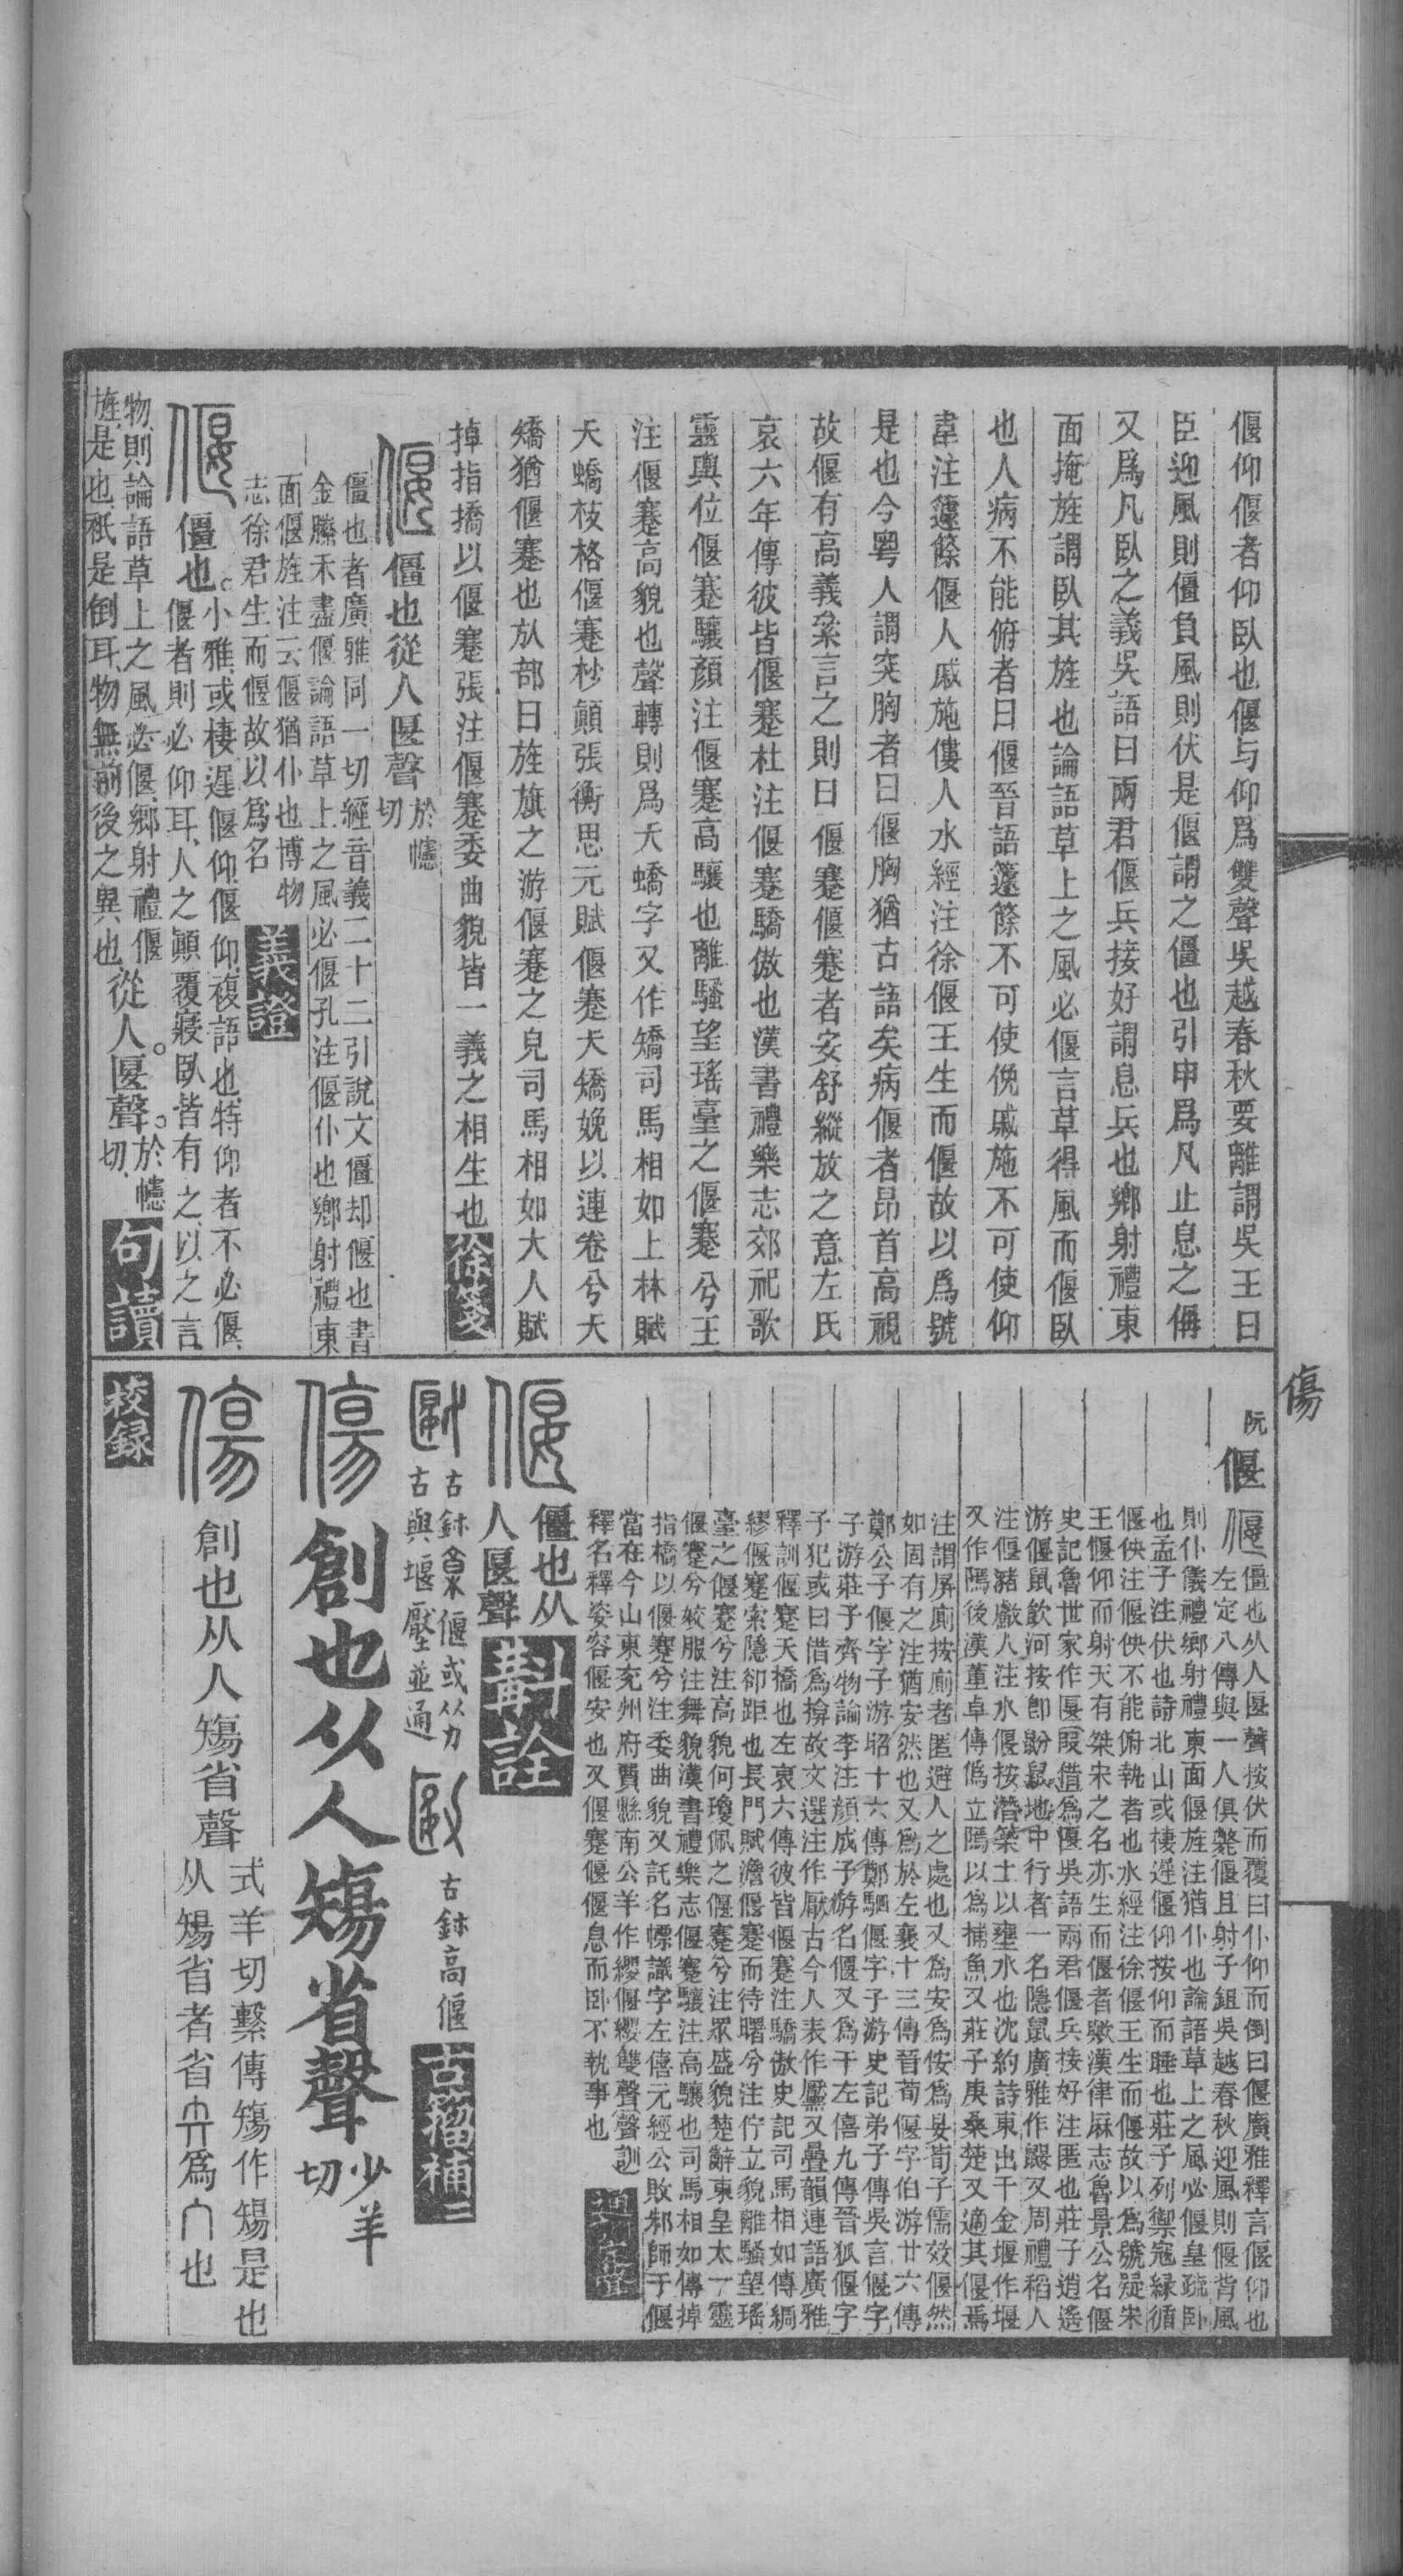 偃仰偃者仰臥也偃与仰爲雙聲吳越春秋要離謂吳王曰
臣迎風則僵負風則伏是偃謂之僵也引申爲凡止息之偁
又爲凡臥之義吳語曰兩君偃兵接好謂息兵也鄉射禮東
面掩旌謂臥其旌也論語草上之風必偃言草得風而偃臥
也人病不能俯者曰偃晉語籧篨不可使俛戚施不可使仰
韋注籧篨偃人戚施僂人水經注徐偃王生而偃故以爲號
是也今粵人謂突胸者曰偃胸猶古語矣病偃者昂首高視
故偃有高義絫言之則曰偃蹇偃蹇者安舒縱放之意左氏
哀六年傳彼皆偃蹇杜注偃蹇驕傲也漢書禮樂志郊祀歌
靈輿位偃蹇驤顏注偃蹇高驤也離騷望瑤臺之偃蹇兮王
注偃蹇高貌也聲轉則爲夭蟜字又作矯司馬相如上林賦
夭蟜枝格偃蹇杪顛張衡思元賦偃蹇夭矯娩以連卷兮夭
矯猶偃蹇也㫃部曰旌旗之游偃蹇之皃司馬相如大人賦
掉指撟以偃蹇張注偃蹇委曲貌皆一義之相生也徐箋
偃 僵也從人匽聲於幰切
僵也者廣雅同一切經音義二十二引說文偃却偃也書
金縢禾盡偃論語草上之風必偃孔注偃仆也鄉射禮東
面偃旌注云偃猶仆也博物
志徐君生而偃故以爲名 義證
偃 僵也。小雅或棲遲偃仰偃仰複語也特仰者不必偃
偃者則必仰耳人之顛覆寢臥皆有之以之言
物則論語草上之風必偃鄉射禮偃
旌是也祇是倒耳物無前後之異也從人。匽聲。於幰切 句讀
傷
阮
偃 偃 僵也从人匽聲按伏而覆曰仆仰而倒曰偃廣雅釋言偃仰也
左定八傳與一人俱斃偃且射子鉏吳越春秋迎風則偃背風
則仆儀禮鄉射禮東面偃旌注猶仆也論語草上之風必偃皇疏臥
也孟子注伏也詩北山或棲遲偃仰按仰而睡也莊子列禦寇緣循
偃佒注偃佒不能俯執者也水經注徐偃王生而偃故以爲號疑宋
王偃仰而射天有桀宋之名亦生而偃者歟漢律厤志魯景公名偃
史記魯世家作匽叚借爲匽吳語兩君偃兵接好注匿也莊子逍遙
游偃鼠飲河按卽鼢鼠地中行者一名隱鼠廣雅作鼴又周禮稻人
注偃豬䱷人注水偃按潛築土以壅水也沈約詩東出千金堰作堰
又作隁後漢董卓傳僞立隁以爲捕魚又莊子庚桑楚又適其偃焉
注謂屏廁按廁者匿避人之處也又爲安爲侒爲晏荀子儒效偃然
如固有之注猶安然也又爲於左襄十三傳晉荀偃字伯游廿六傳
鄭公子偃字子游昭十六傳鄭駟偃字子游史記弟子傳吳言偃字
子游莊子齊物論李注顏成子游名偃又爲干左僖九傳晉狐偃字
子犯或曰借爲揜故文選注作厭古今人表作黶又疊韻連語廣雅
釋訓偃蹇夭撟也左哀六傳彼皆偃蹇注驕傲史記司馬相如傳綢
繆偃蹇索隱卻距也長門賦澹偃蹇而待曙兮注佇立貌離騷望瑤
臺之偃蹇兮注高貌何瓊佩之偃蹇兮注眾盛貌楚辭東皇太一靈
偃蹇兮姣服注舞貌漢書禮樂志偃蹇驤注高驤也司馬相如傳掉
指橋以偃蹇兮注委曲貌又託名幖識字左僖元經公敗邾師于偃
當在今山東兖州府費縣南公羊作纓偃纓雙聲聲訓
釋名釋姿容偃安也又偃蹇偃偃息而臥不執事也
偃 僵也从
人匽聲 斠詮
古鉥 偃或从
古與堰壓並通 古鉥高偃 古籀補
傷 創也从人煬省聲少羊切
傷 創也从人煬省聲式羊切繫傳煬作煬是也
校錄